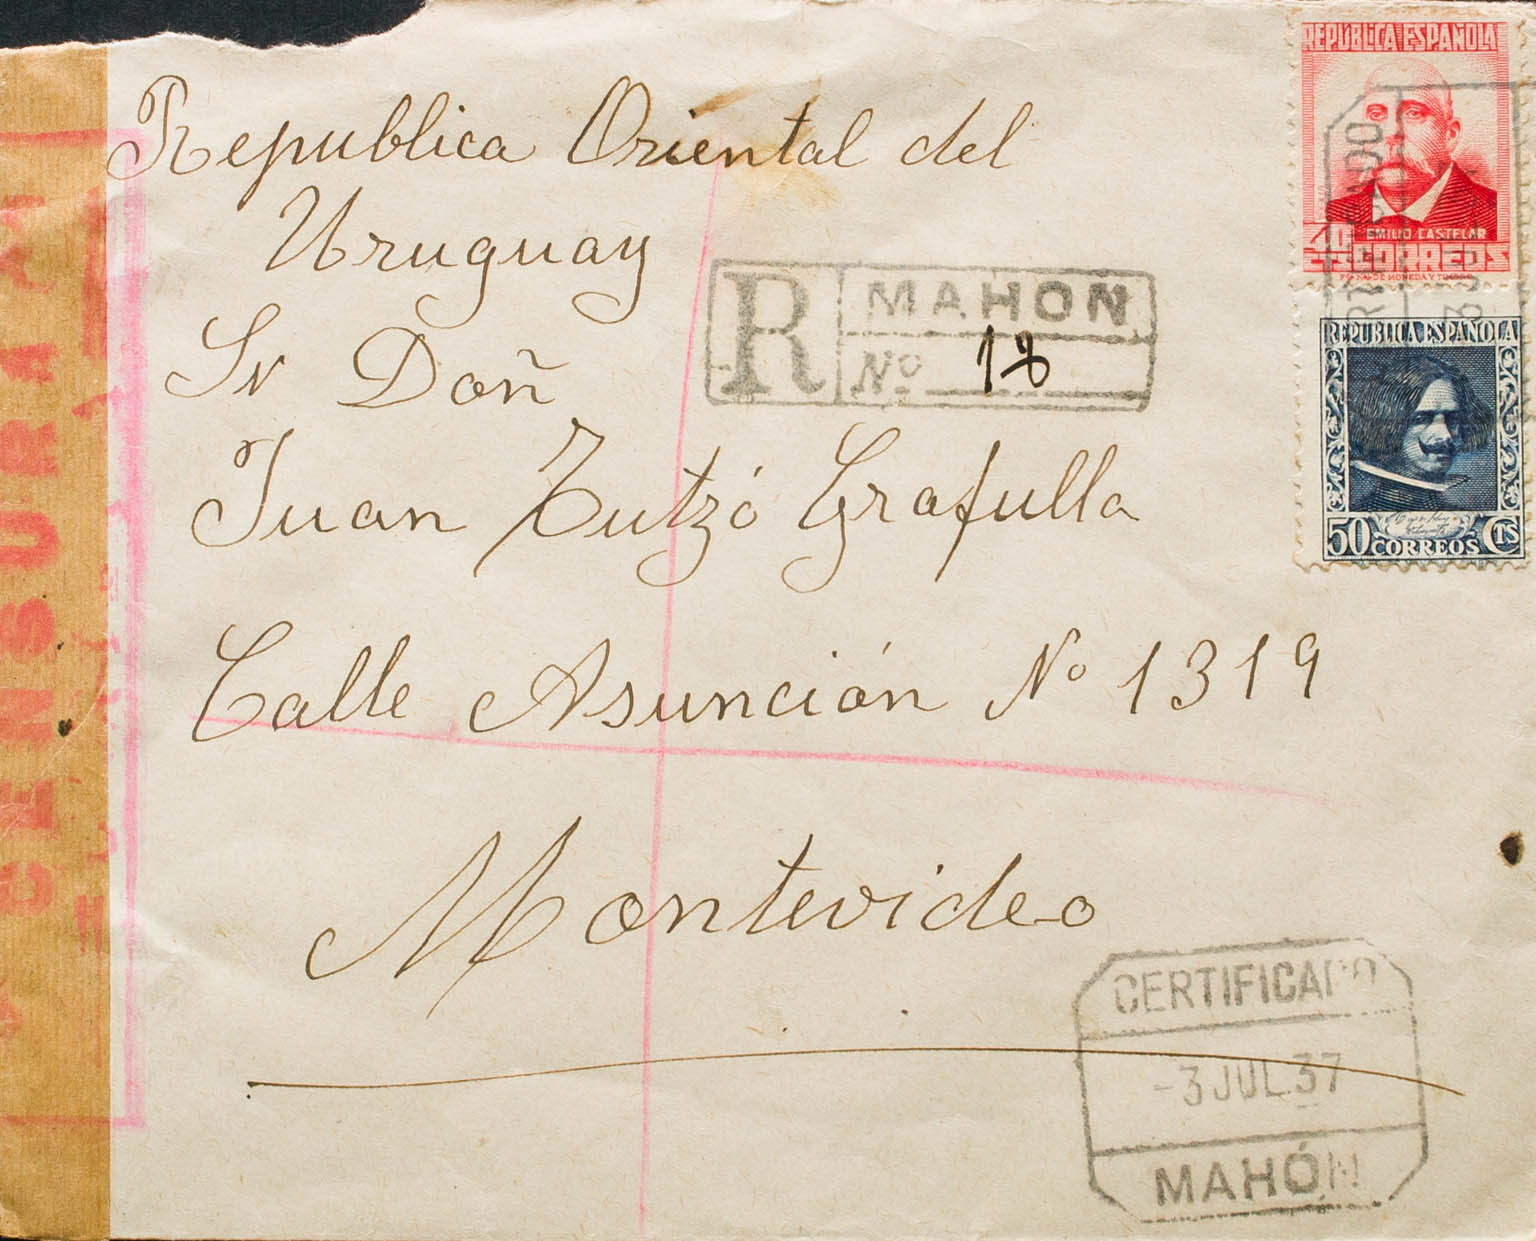 Republica Oriental del
Uruguay
Sr Doñ
Juan Tutzó Grafulla
Calle Asunción Nº 1319
Montevideo
R MAHON
Nº 18
REPUBLICA ESPAÑOLA
EMILIO CASTELAR
CORREOS
REPUBLICA ESPAÑOLA
50 CORREOS CTS
CERTIFICADO
-3 JUL.37
MAHÓN
CENSURA